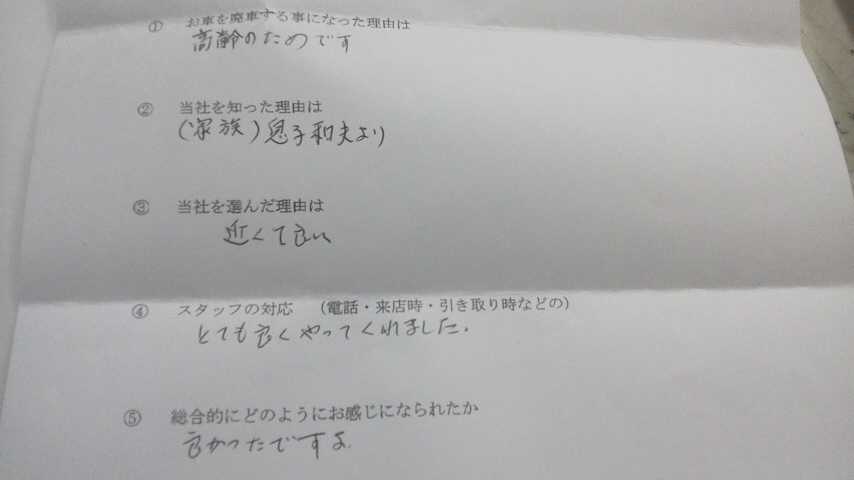 ① お車を廃車する事になった理由は
高齢のためです
② 当社を知った理由は
(家族)息子和夫より
③ 当社を選んだ理由は
近くて良い
④ スタッフの対応 (電話・来店時・引き取り時などの)
とても良くやってくれました.
⑤ 総合的にどのようにお感じになられたか
良かったですよ.